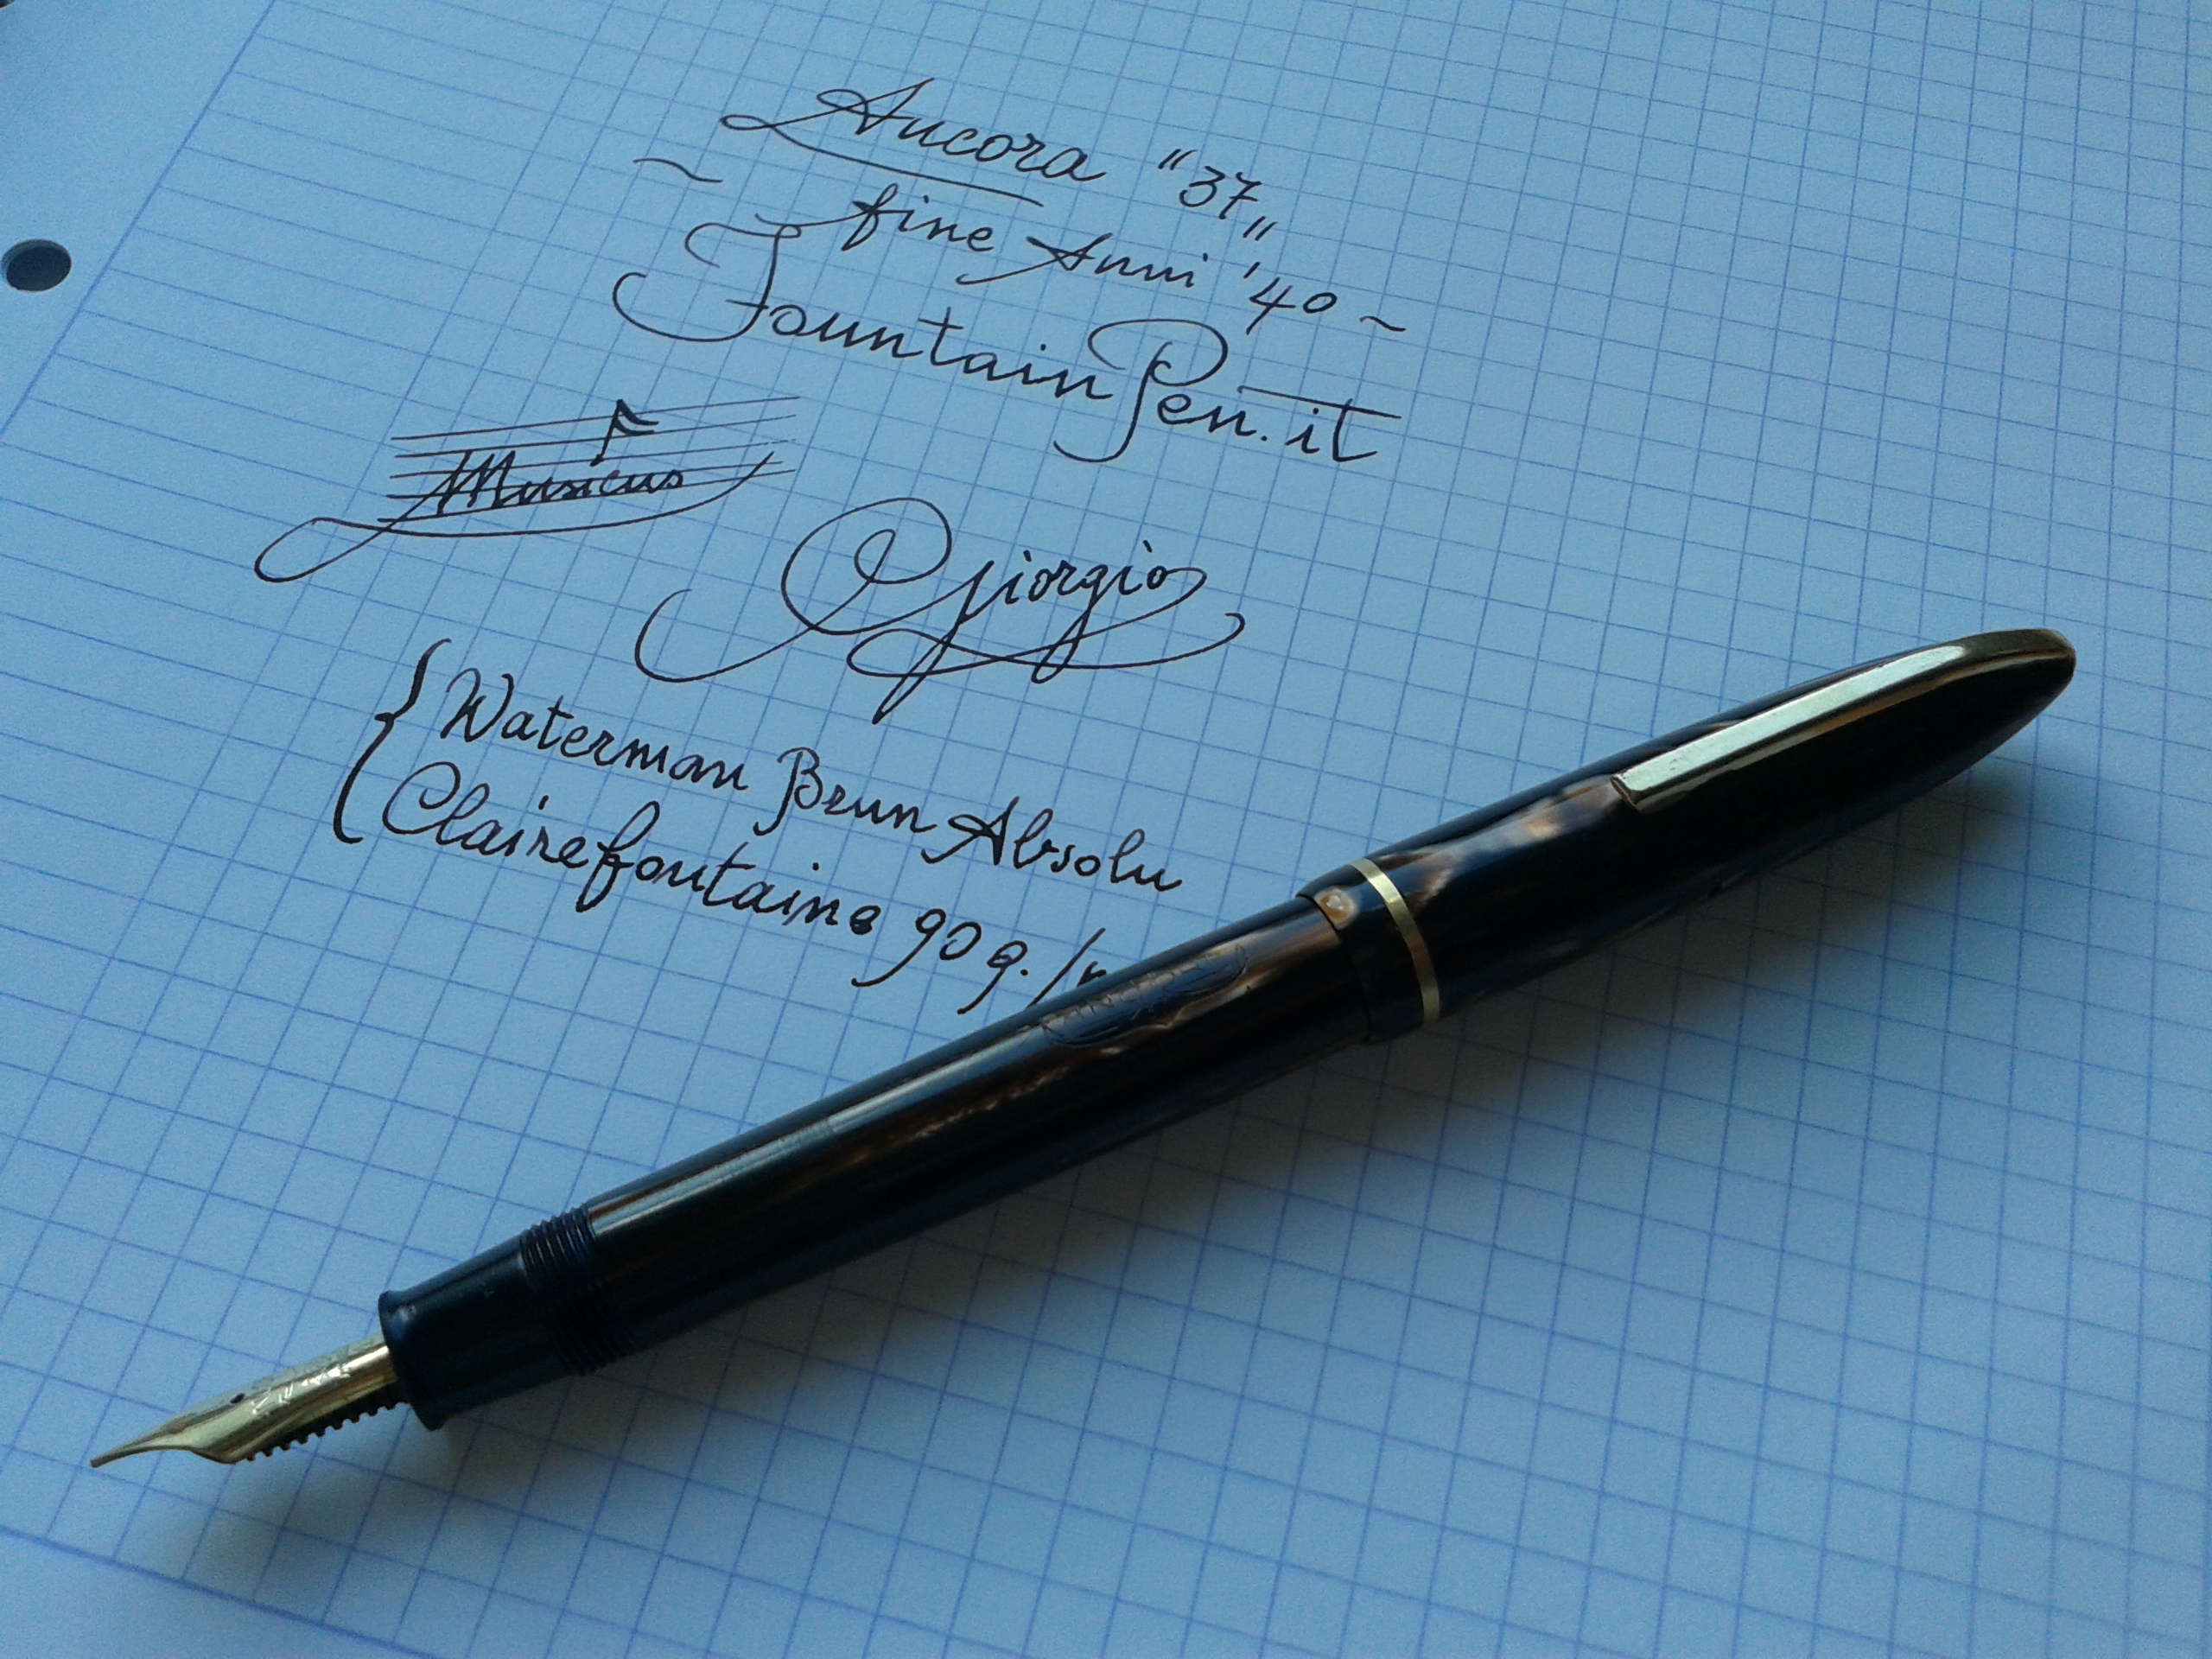 Ancora "37„
~ fine Anni '40 ~
FountainPen.it
Musicus
Giorgio
{ Waterman Brun Absolu
Clairefontaine 90 g./